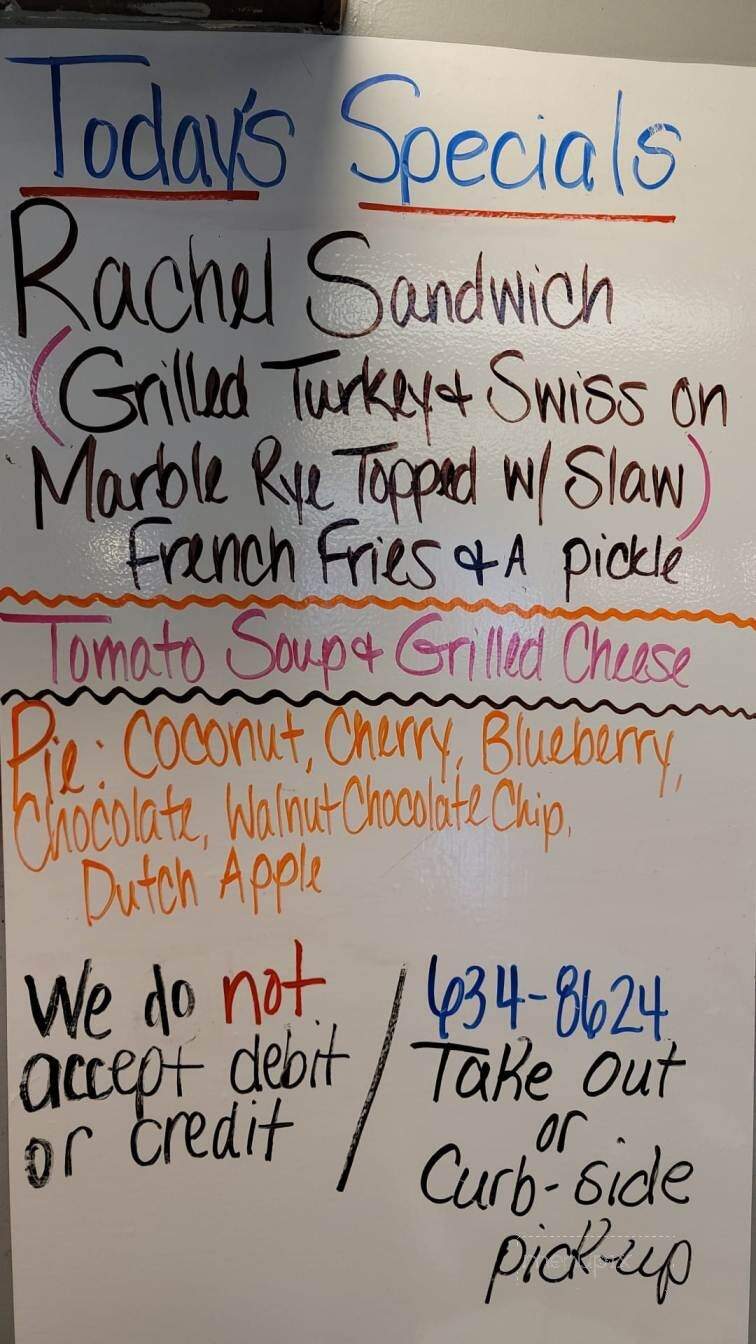 Today's Specials
Rachel Sandwich
(Grilled Turkey & Swiss on
Marble Rye Topped w/ Slaw)
French Fries & A pickle
Tomato Soup & Grilled Cheese
Pie: Coconut, Cherry, Blueberry,
Chocolate, Walnut Chocolate Chip,
Dutch Apple
We do not
accept debit
or credit
634-8624
Take out
or
Curb-side
pick-up